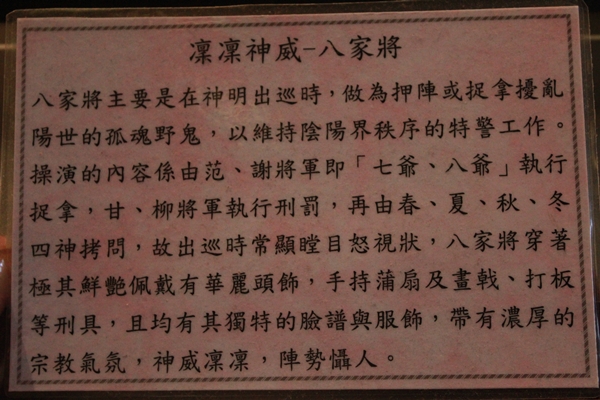 凜凜神威-八家將
八家將主要是在神明出巡時，做為押陣或捉拿擾亂
陽世的孤魂野鬼，以維持陰陽界秩序的特警工作。
操演的內容係由范、謝將軍即「七爺、八爺」執行
捉拿，甘、柳將軍執行刑罰，再由春、夏、秋、冬
四神拷問，故出巡時常顯瞠目怒視狀，八家將穿著
極其鮮艷佩戴有華麗頭飾，手持蒲扇及畫戟、打板
等刑具，且均有其獨特的臉譜與服飾，帶有濃厚的
宗教氣氛，神威凜凜，陣勢懾人。